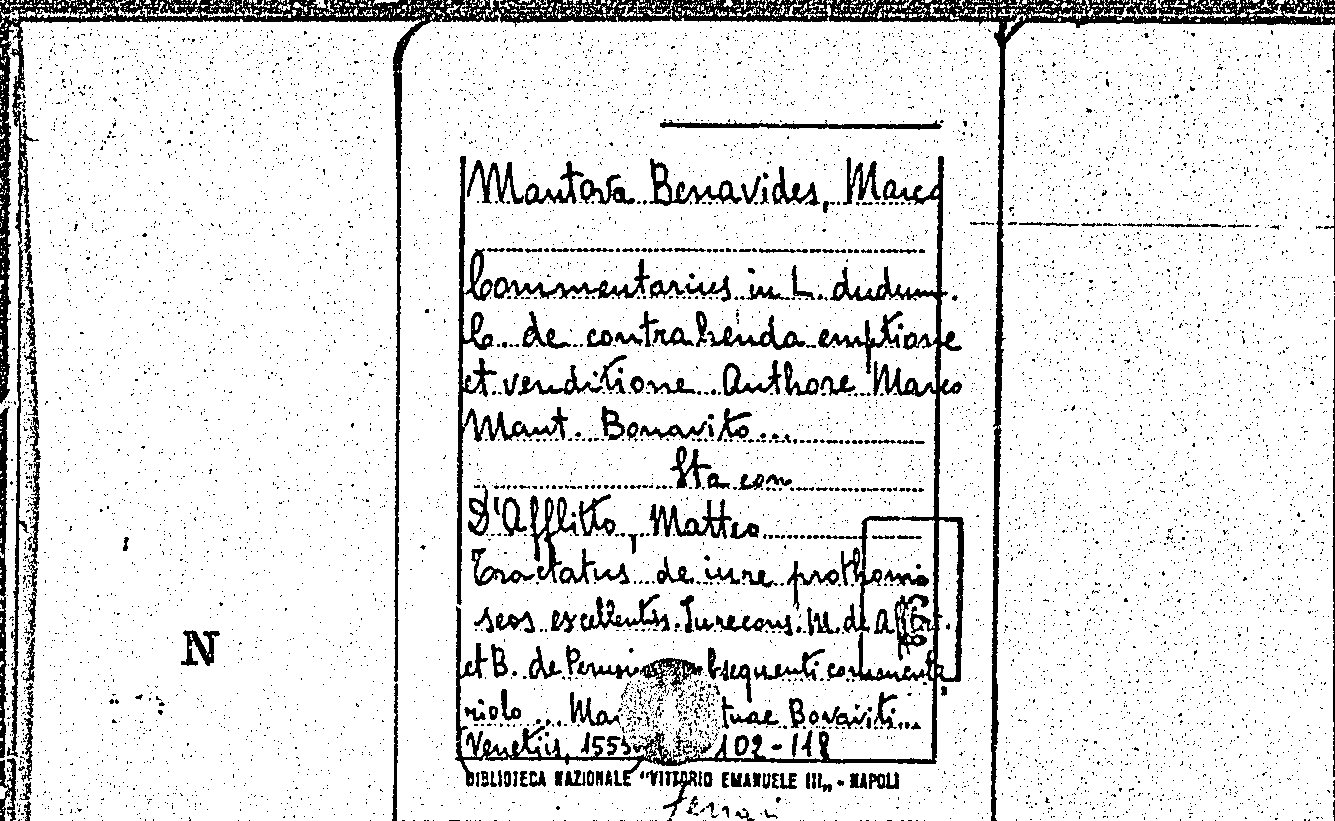 Mantova Benavides, Marco
Commentarius in L. dudum.
C. de contrahenda emptione
et venditione. Authore Marco
Mant. Bonavito...
Sta con
D'Afflitto, Matteo
Tractatus de iure prothomi
seos excellentis. Jurecons. M. de Afflict.
et B. de Perusio bsequenti commenta
riolo ... Ma tuae Bonaviti...
Venetiis, 1553 102-118
BIBLIOTECA NAZIONALE "VITTORIO EMANUELE III„ - NAPOLI
N